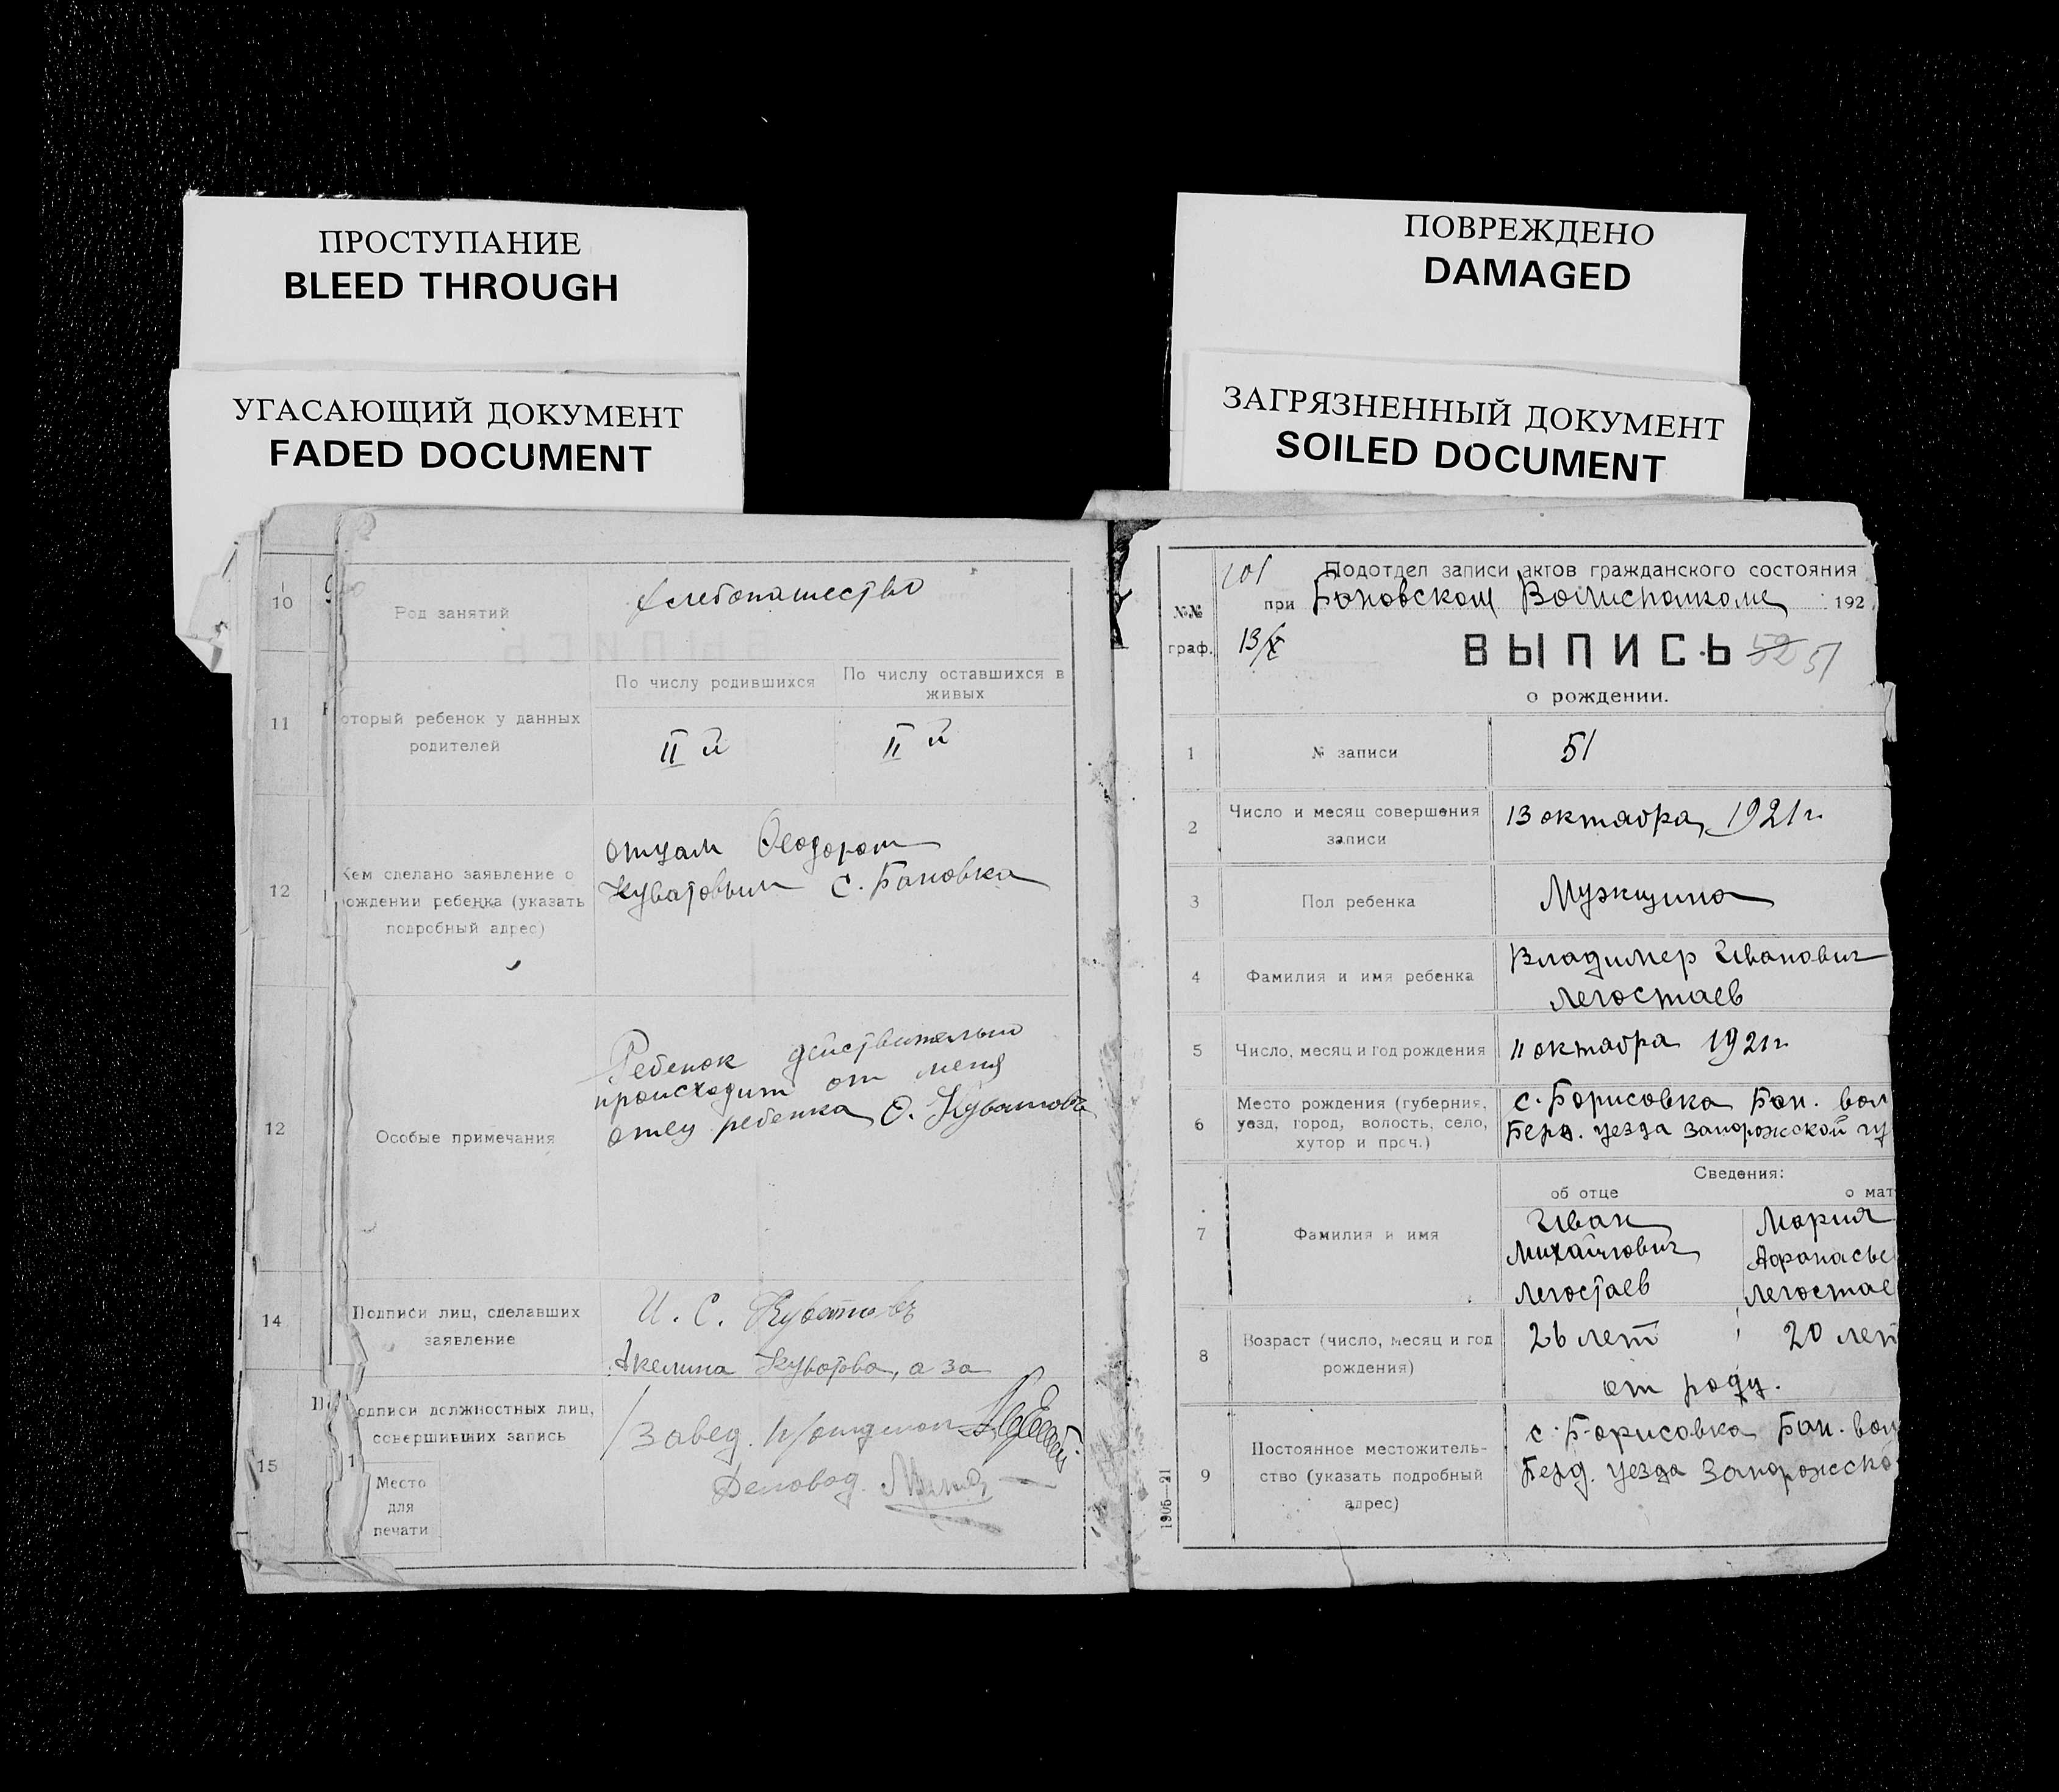 ПРОСТУПАНИЕ
BLEED THROUGH
УГАСАЮЩИЙ ДОКУМЕНТ
FADED DOCUMENT
ПОВРЕЖДЕНО
DAMAGED
ЗАГРЯЗНЕННЫЙ ДОКУМЕНТ
SOILED DOCUMENT
10
Род занятий
хлебопашество
11
оторый ребенок у данных
родителей
По числу родившихся
По числу оставшихся в
живых
II й
II й
12
Кем сделано заявление о
ождении ребенка (указать
подробный адрес)
отцом Феодором
Куватовым с. Бановка
12
Особые примечания
Ребенок действительно
происходит от меня
отец ребенка Ф. Куватовъ
14
Подписи лиц, сделавших
заявление
И. С. Куватовъ
Акелина Куватова, а за
15
одписи должностных лиц,
совершивших запись
Завед.
Деловод.
Место
для
печати
№№
граф.
101
Подотдел записи актов гражданского состояния
при Бановском Волисполкоме 192
13/X
ВЫПИСЬ 52 51
о рождении.
1
№ записи
51
2
Число и месяц совершения
записи
13 октабра 1921 г.
3
Пол ребенка
Мужщина
4
Фамилия и имя ребенка
Владимер Иванович
Легостаев
5
Число, месяц и год рождения
11 октабра 1921 г.
6
Место рождения (губерния,
уезд, город, волость, село,
хутор и проч.)
с. Борисовка Бан. вол
Берд. уезда Запорожской гу
Сведения:
об отце
о мат
7
Фамилия и имя
Иван
Михайлович
Легостаев
Мария
Афанасье
Легостае
8
Возраст (число, месяц и год
рождения)
26 лет
20 лет
от роду.
9
Постоянное местожитель-
ство (указать подробный
адрес)
с. Борисовка Бан. вол
Берд. уезда Запорожско
1906—21